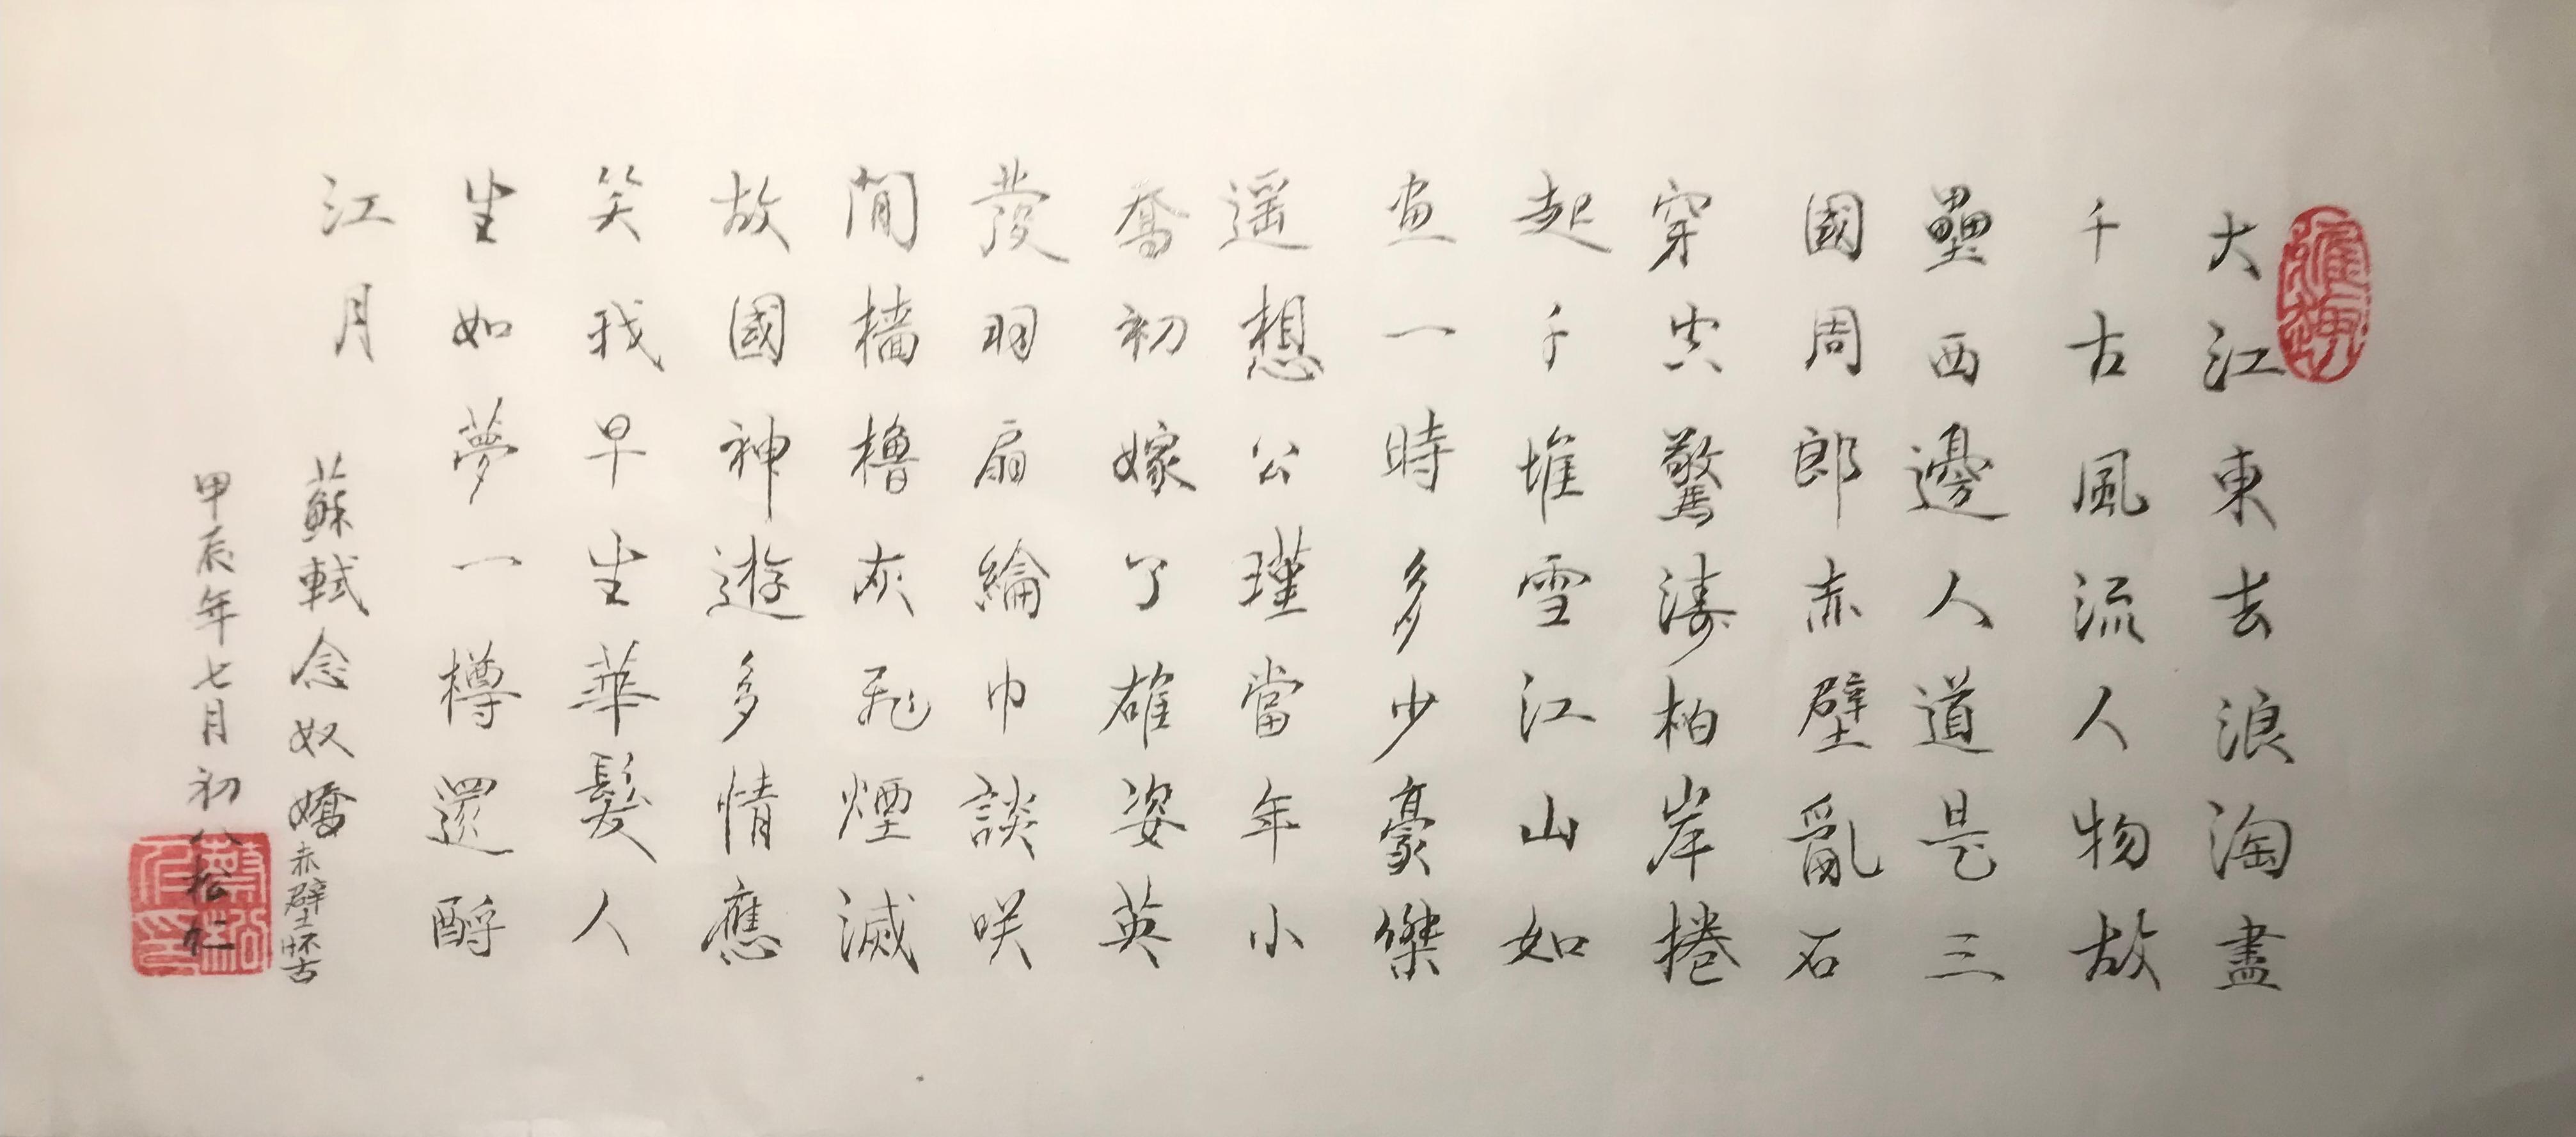 大江東去浪淘盡
千古風流人物故
壘西邊人道是三
國周郎赤壁亂石
穿空驚濤拍岸捲
起千堆雪江山如
畫一時多少豪傑
遥想公瑾當年小
喬初嫁了雄姿英
發羽扇綸巾談咲
間檣櫓灰飛煙滅
故國神遊多情應
笑我早生華髮人
生如夢一樽還酹
江月
蘇軾念奴嬌赤壁怀古
甲辰年七月初八松仁